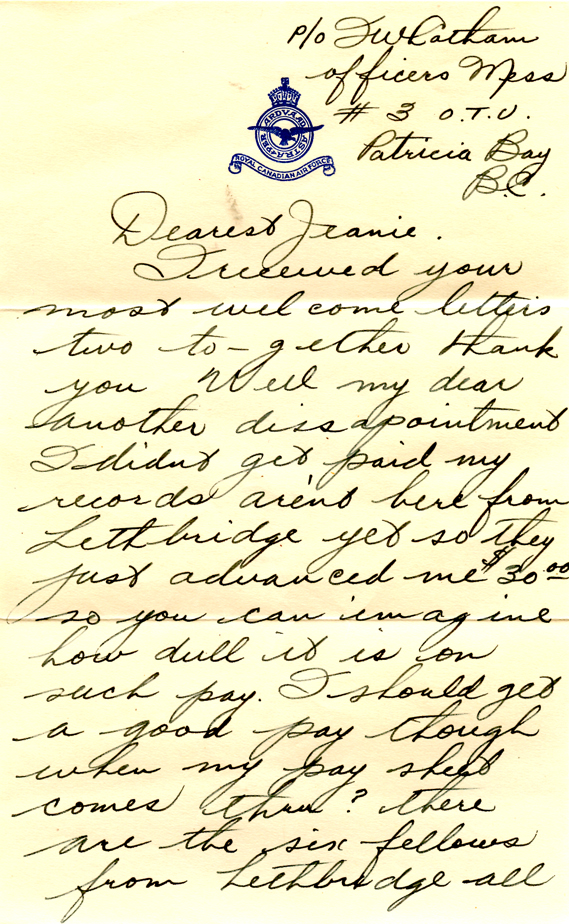 P/O J W Latham
Officers Mess
# 3 O.T.U.
Patricia Bay
B.C.
PER ARDVA AD ASTRA
ROYAL CANADIAN AIR FORCE
Dearest Jeanie.
I received your
most welcome letters
two to-gether thank
you Well my dear
another dissapointment
I didnt get paid my
records are'nt here from
Lethbridge yet so they
just advanced me $30.00
so you can imagine
how dull it is on
such pay. I should get
a good pay though
when my pay sheet
comes thru? there
are the six fellows
from Lethbridge all